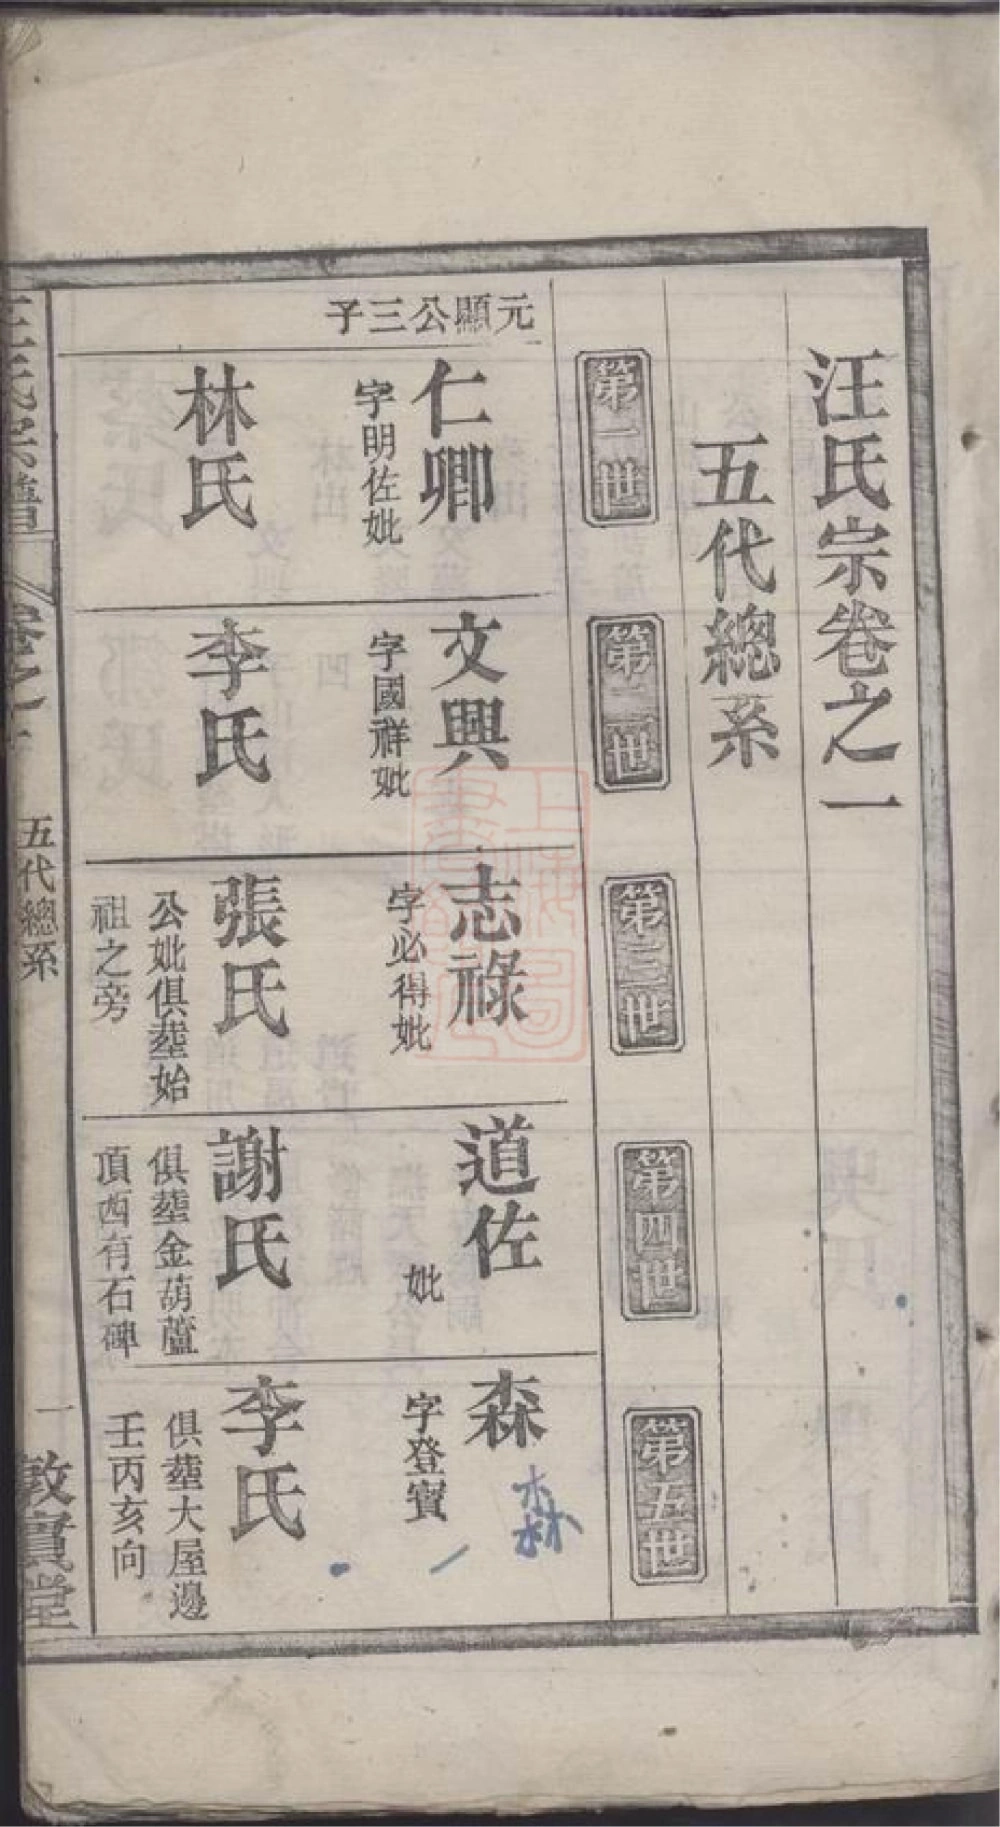 汪氏宗卷之一
五代總系
第一世
第二世
第三世
第四世
第五世
元顯公三子
仁卿
字明佐妣
林氏
文興
字國祥妣
李氏
志祿
字必得妣
張氏
公妣俱塟始
祖之旁
道佐
妣
謝氏
俱塟金葫蘆
頂西有石碑
森
森
字登寳
李氏
俱塟大屋邊
壬丙亥向
汪氏宗譜
卷之一
五代總系
一
敦實堂
上海圖書館藏